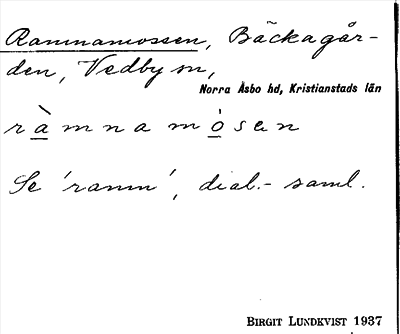 Ramnamossen, Bäckagår-
den, Vedby sn,
Norra Åsbo hd, Kristianstads län
ràmnamòsen
Se 'ramn', dial.- saml.
BIRGIT LUNDKVIST 1937